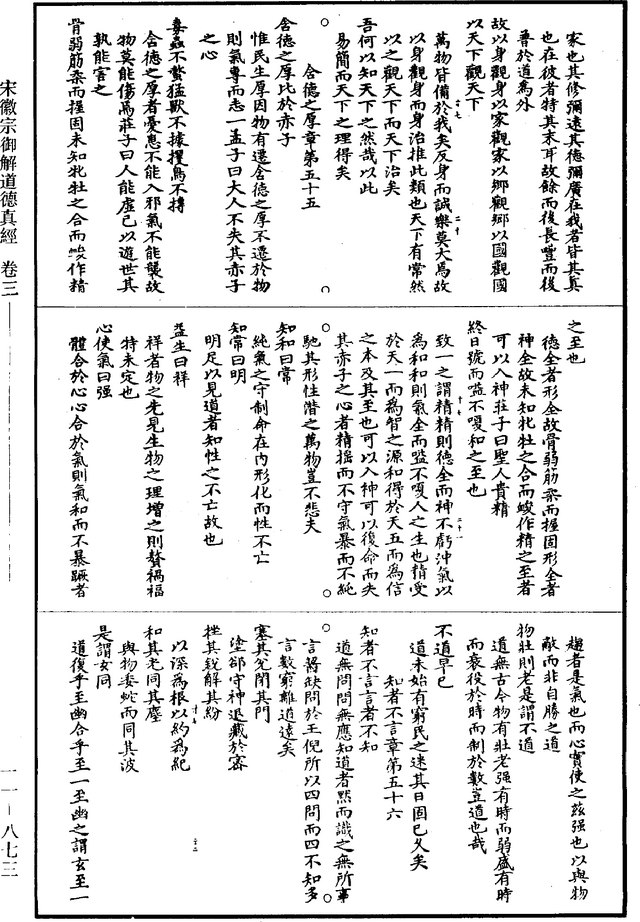 家也其修彌遠其德彌廣在我者皆其真
也在彼者特其末耳故餘而後長豐而後
普於道為外
故以身觀身以家觀家以鄉觀鄉以國觀國
以天下觀天下
萬物皆備於我矣反身而誠樂莫大焉故
以身觀身而身治推此類也天下有常然
以之觀天下而天下治矣
吾何以知天下之然哉以此
易簡而天下之理得矣
含德之厚章第五十五
含德之厚比於赤子
惟民生厚因物有遷含德之厚不遷於物
則氣專而志一孟子曰大人不失其赤子
之心
毒蟲不螫猛獸不據攫鳥不搏
含德之厚者憂患不能入邪氣不能襲故
物莫能傷焉莊子曰人能虛己以遊世其
孰能害之
骨弱筋柔而握固未知牝牡之合而峻作精
之至也
德全者形全故骨弱筋柔而握固形全者
神全故未知牝牡之合而峻作精之至者
可以入神莊子曰聖人貴精
終日號而嗌不嗄和之至也
致一之謂精精則德全而神不虧沖氣以
為和和則氣全而嗌不嗄人之生也精受
於天一而為智之源和得於天五而為信
之本及其至也可以入神可以復命而失
其赤子之心者精搖而不守氣暴而不純
馳其形性潛之萬物豈不悲夫
知和曰常
純氣之守制命在內形化而性不亡
知常曰明
明足以見道者知性之不亡故也
益生曰祥
祥者物之先見生物之理增之則贅禍福
特未定也
心使氣曰强
體合於心心合於氣則氣和而不暴蹶者
趨者是氣也而心實使之茲强也以與物
敵而非自勝之道
物壯則老是謂不道
道無古今物有壯老强有時而弱盛有時
而衰役於時而制於數豈道也哉
不道早已
道未始有窮民之迷其日固已久矣
知者不言章第五十六
知者不言言者不知
道無問問無應知道者默而識之無所事
言齧缺問於王倪所以四問而四不知多
言數窮離道遠矣
塞其兌閉其門
塗郤守神退藏於密
挫其銳解其紛
以深為根以約為紀
和其光同其塵
與物委蛇而同其波
是謂玄同
道復乎至幽合乎至一至幽之謂玄至一
宋徽宗御解道德真經 卷三
一一－八七三